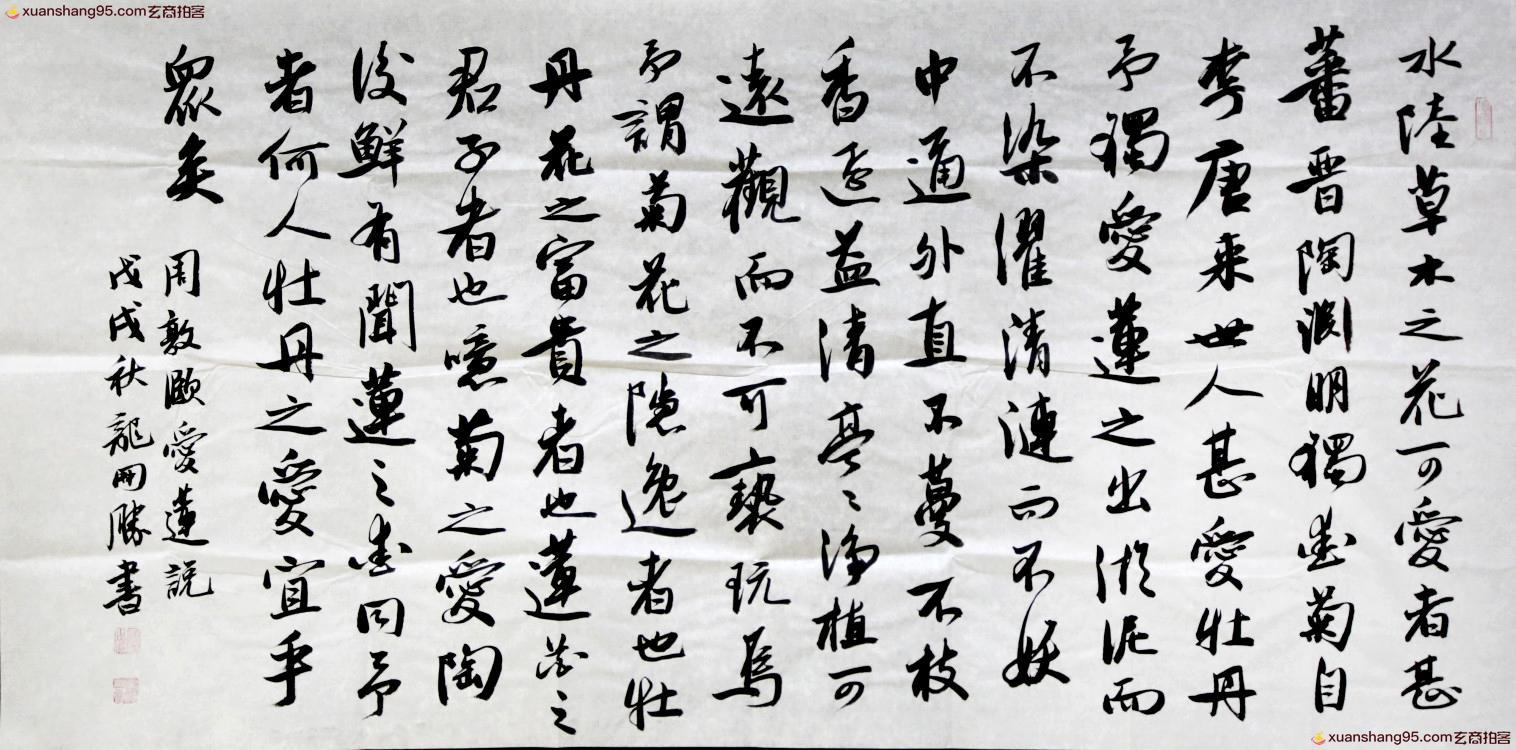 xuanshang95.com玄商拍客
水陸草木之花可愛者甚
蕃晉陶淵明獨愛菊自
李唐来世人甚愛牡丹
予獨愛蓮之出淤泥而
不染濯清漣而不妖
中通外直不蔓不枝
香遠益清亭〻淨植可
遠觀而不可褻玩焉
予謂菊花之隱逸者也牡
丹花之富貴者也蓮花之
君子者也噫菊之愛陶
後鮮有聞蓮之愛同予
者何人牡丹之愛宜乎
眾矣
周敦頤愛蓮説
戊戌秋龍開勝書
xuanshang95.com玄商拍客